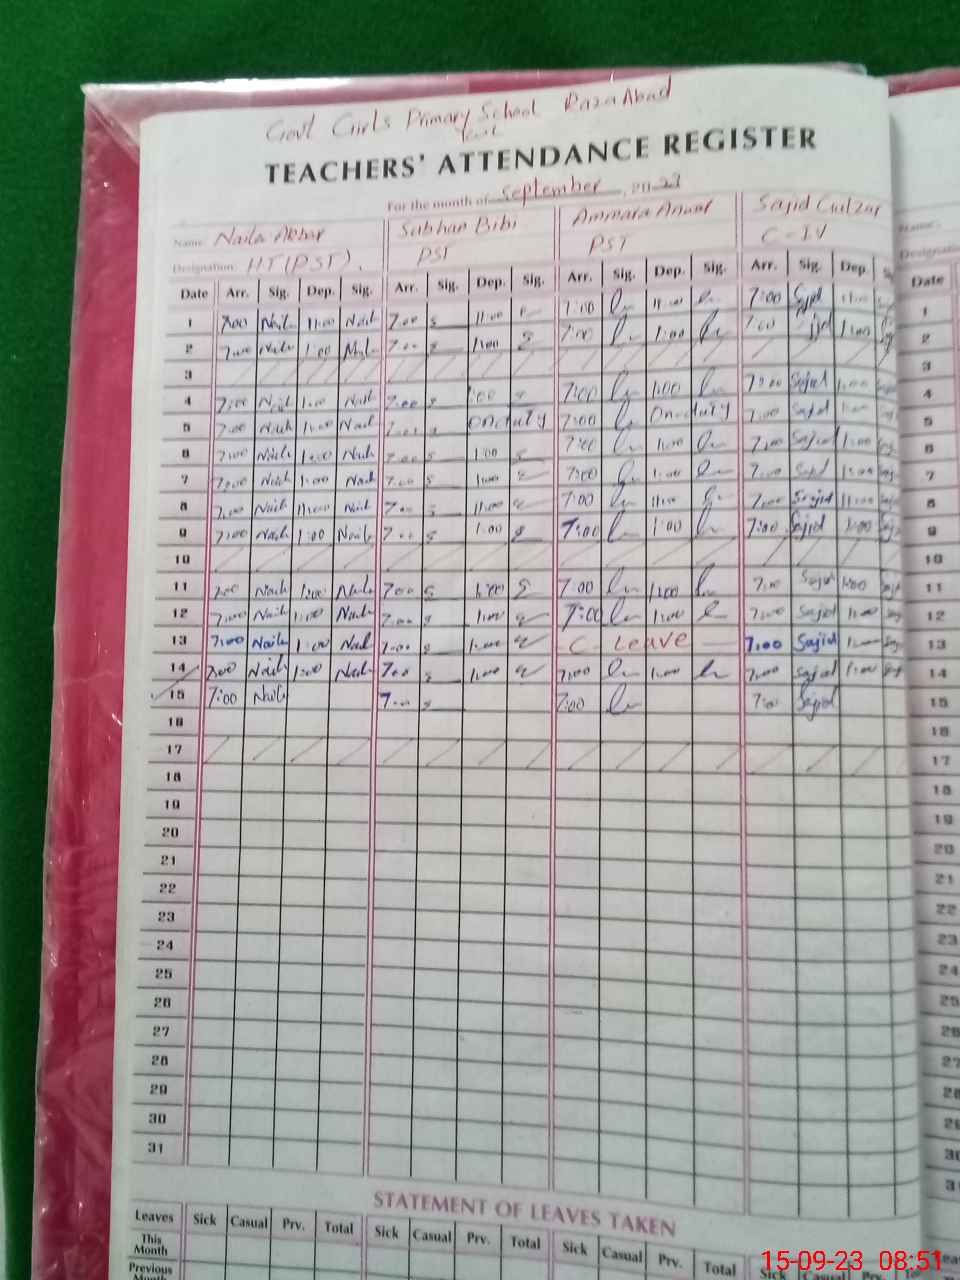 Govt Girls Primary School Raza Abad
TEACHERS' ATTENDANCE REGISTER
For the month of September, 2023
Name Naila Akbar Subhan Bibi Ammara Anwar Sajid Gulzar
Designation HT (PST). PST PST C-IV
Date Arr. Sig. Dep. Sig. Arr. Sig. Dep. Sig. Arr. Sig. Dep. Sig. Arr. Sig. Dep. Date
1 7:00 Naila 11:00 Naila 7:00 11:00 7:00 11:00 7:00 Sajid 11:00 1
2 7:00 Naila 1:00 Naila 7:00 1:00 7:00 1:00 7:00 Sajid 1:00 2
3 3
4 7:00 Naila 1:00 Naila 7:00 1:00 7:00 1:00 7:00 Sajid 1:00 4
5 7:00 Naila 1:00 Naila 7:00 On duty 7:00 On duty 7:00 Sajid 1:00 5
6 7:00 Naila 1:00 Naila 7:00 1:00 7:00 1:00 7:00 Sajid 1:00 6
7 7:00 Naila 1:00 Naila 7:00 1:00 7:00 1:00 7:00 Sajid 1:00 7
8 7:00 Naila 11:00 Naila 7:00 11:00 7:00 11:00 7:00 Sajid 11:00 8
9 7:00 Naila 1:00 Naila 7:00 1:00 7:00 1:00 7:00 Sajid 1:00 9
10 10
11 7:00 Naila 1:00 Naila 7:00 1:00 7:00 1:00 7:00 Sajid 1:00 11
12 7:00 Naila 1:00 Naila 7:00 1:00 7:00 1:00 7:00 Sajid 1:00 12
13 7:00 Naila 1:00 Naila 7:00 1:00 C - Leave 7:00 Sajid 1:00 13
14 7:00 Naila 1:00 Naila 7:00 1:00 7:00 1:00 7:00 Sajid 1:00 14
15 7:00 Naila 7:00 7:00 7:00 Sajid 15
16 16
17 17
18 18
19 19
20 20
21 21
22 22
23 23
24 24
25 25
26 26
27 27
28 28
29 29
30 30
31
STATEMENT OF LEAVES TAKEN
Leaves Sick Casual Prv. Total Sick Casual Prv. Total Sick Casual Prv. Total Sick
This Month
Previous
15-09-23 08:51